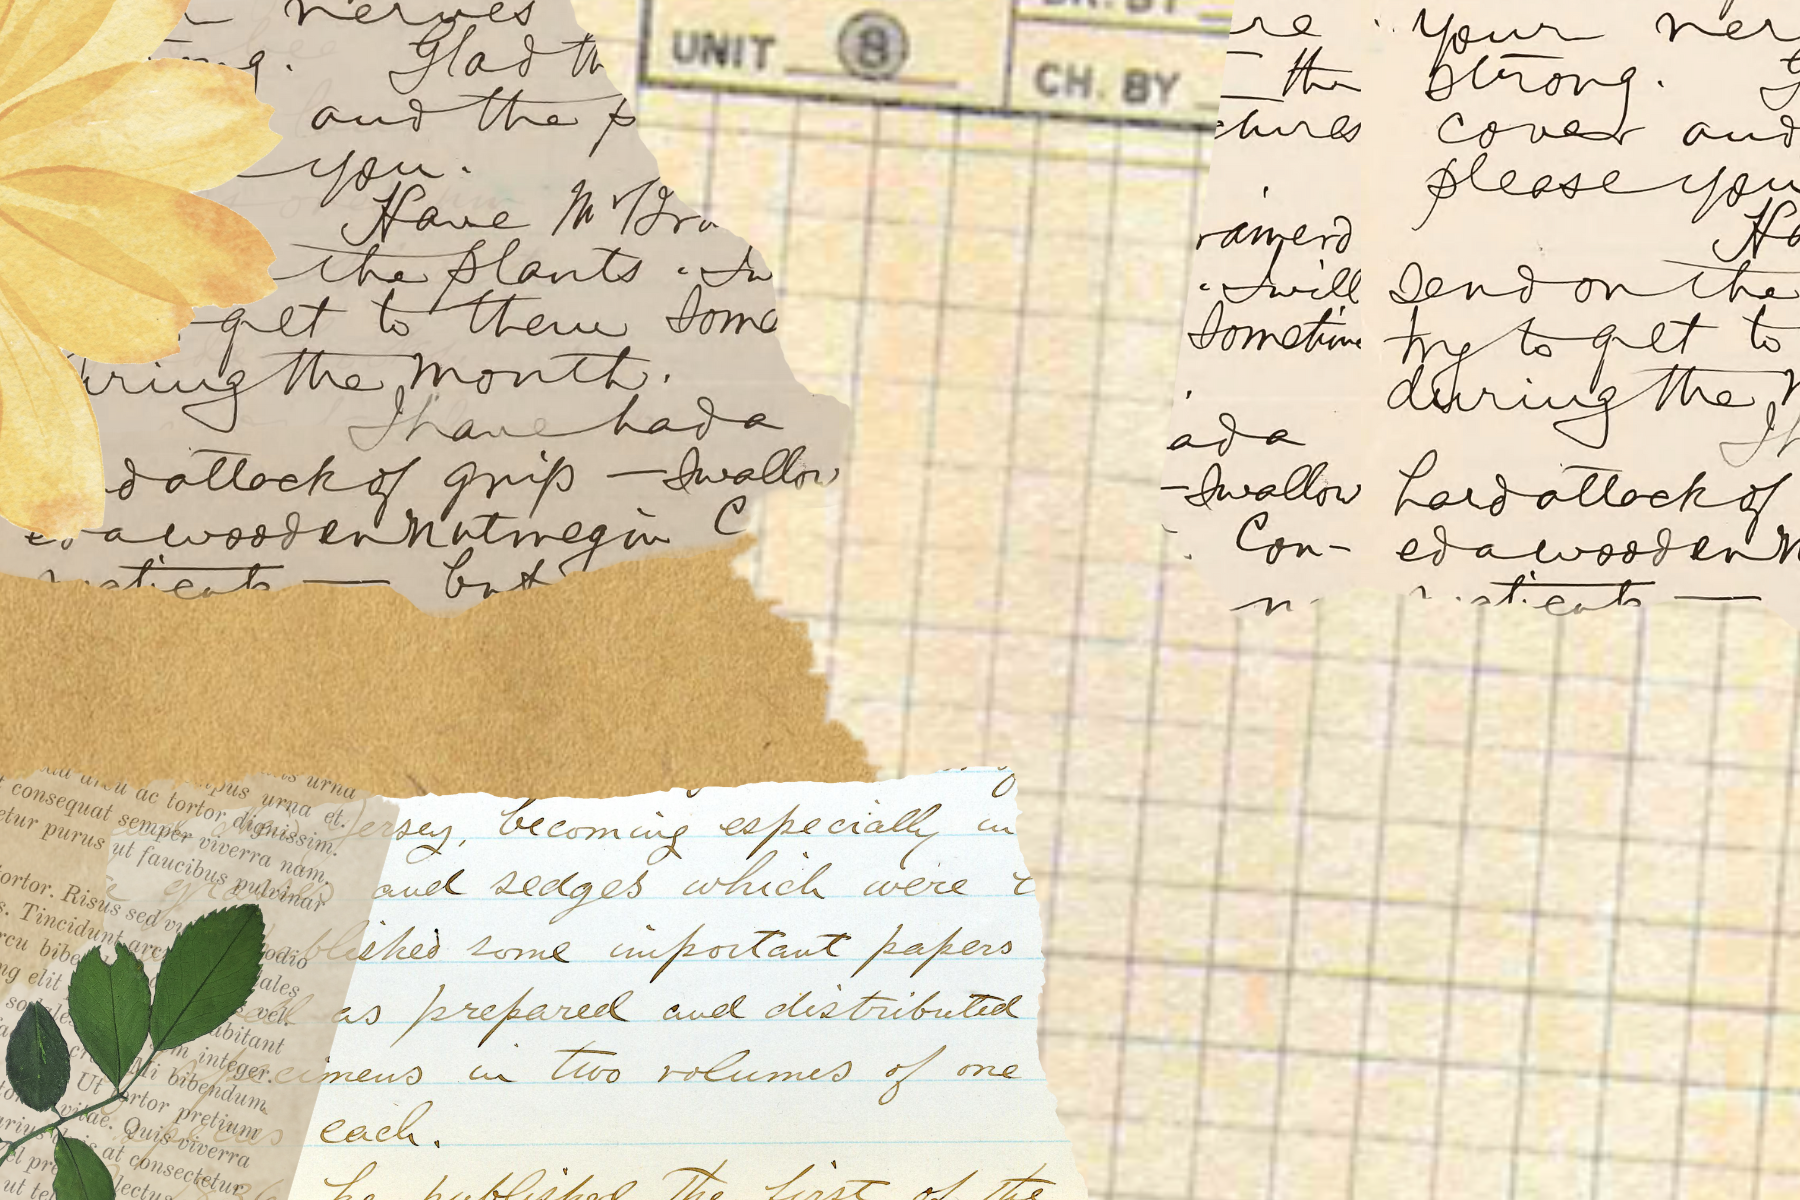 nerves
Glad th
and the p
you.
Have Mr Bra
the plants. In
get to them some
uring the month.
I have had a
d attack of grip — Swallow
ed a wooden nutmeg in C
but
UNIT 8
CH. BY
re
the
ctures
rainerd
. I will
Sometime
ad a
— Swallow
Con-
your ner
strong. G
cover and
please you
Ha
send on the
try to get to
during the M
I h
hard attack of
ed a wooden n
necticut —
urna
ac tortor tempus urna et.
consequat semper dignissim.
etur purus viverra nam,
ut faucibus pulvinar
ortor. Risus sed
s. Tincidunt arcu odio
rcu bibe
ng elit ales
vel.
abitant
integer.
Mi bibendum
Ut tortor pretium
vitae. Quis viverra
at consectetur
ut lectus
ersey, becoming especially in
and sedges which were
blished some important papers
as prepared and distributed
cimens in two volumes of one
each.
he published the first of the